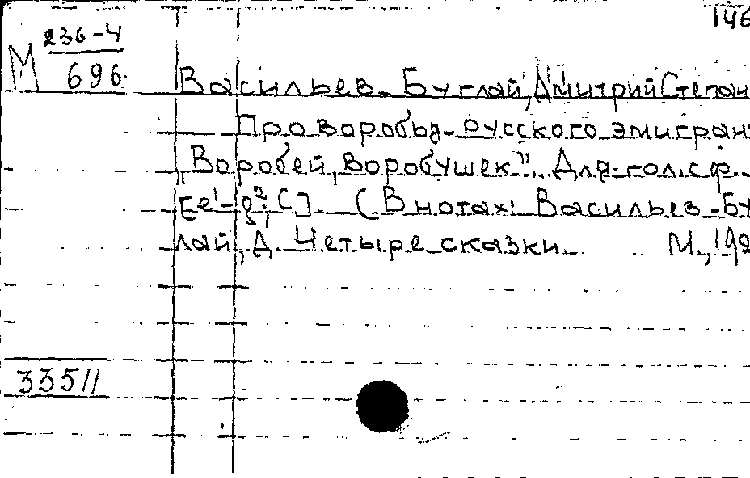 146
М 236-4
696
Васильев-Буглай, Дмитрий Степан
Про воробья-русского эмигран
"Воробей, воробушек". Для гол. с ф.
[e¹-g² C]. (В нотах: Васильев-Бу
лай, Д. Четыре сказки. М., 192
33511